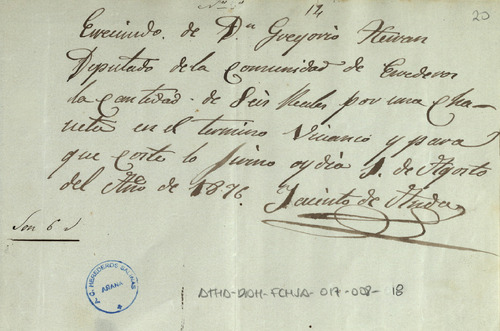 Nº 9 12 20
Errecivido. de Dⁿ Gregorio Herran
Deputado de la Comunidad de Erederos
la Cantidad. de Seis Reales por una Cha
neta en el termino Vicanco y para
que Coste lo firmo oy dia 1. de Agosto
del Año de 1876. Jacinto de Anda
Son 6 r
P. G. HEREDEROS SALINAS
AÑANA
ATHA-DAH-FCHSA-017-008-18